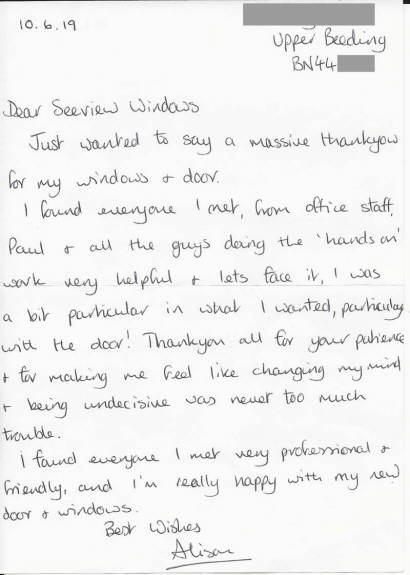 10.6.19
Upper Beeding
BN44
Dear Seeview Windows
Just wanted to say a massive thankyou
for my windows + door.
I found everyone I met, from office staff,
Paul + all the guys doing the 'hands on'
work very helpful + lets face it, I was
a bit particular in what I wanted, particulay
with the door! Thankyou all for your patience
+ for making me feel like changing my mind
+ being undecisive was never too much
trouble.
I found everyone I met very professional +
friendly, and I'm really happy with my new
door + windows.
Best Wishes
Alison